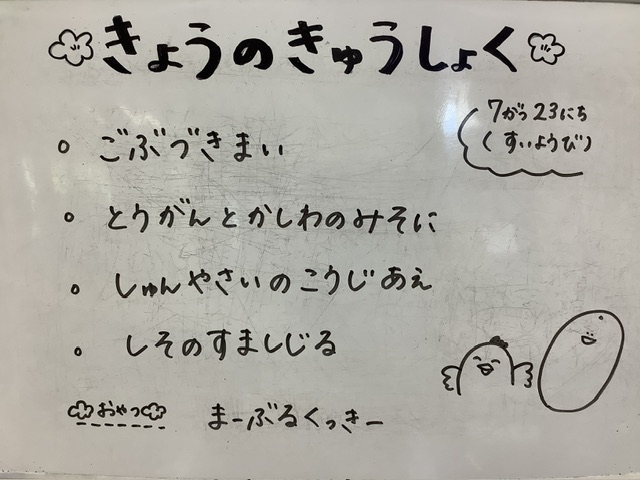 きょうのきゅうしょく
7がつ23にち
(すいようび)
ごぶづきまい
とうがんとかしわのみそに
しゅんやさいのこうじあえ
しそのすましじる
おやつ まーぶるくっきー